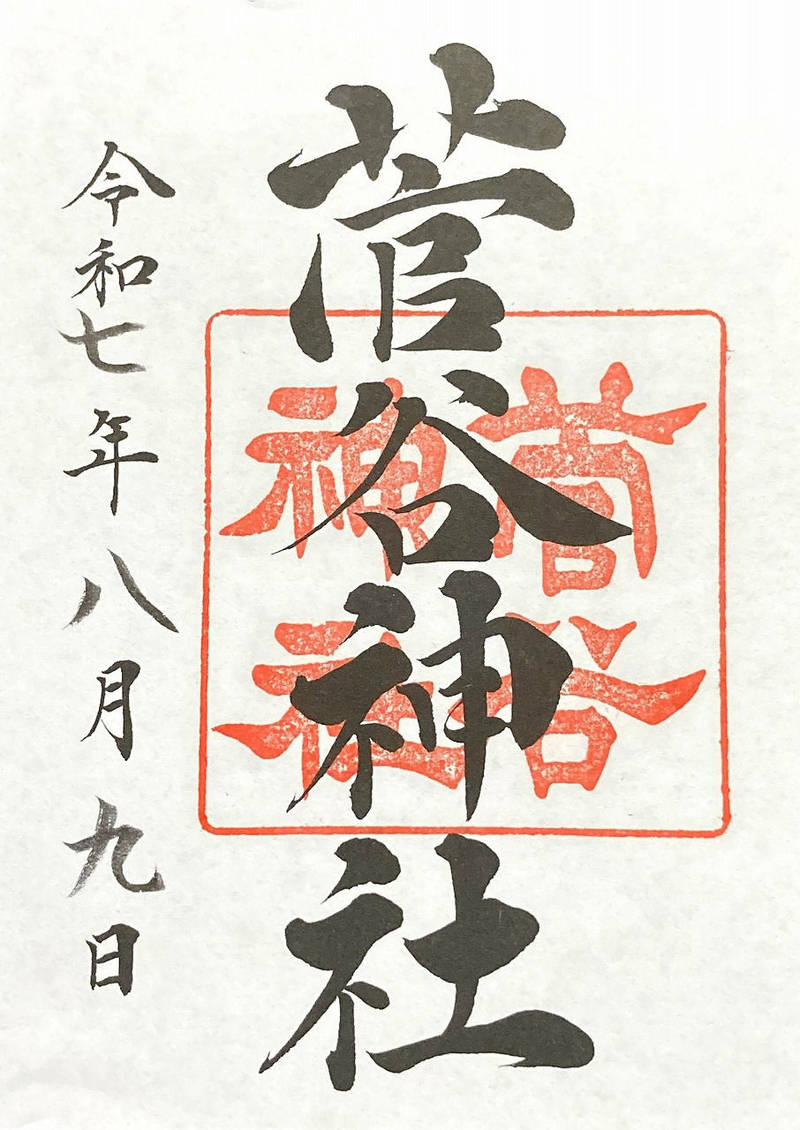 菅谷神社
菅谷
神社
令和七年八月九日